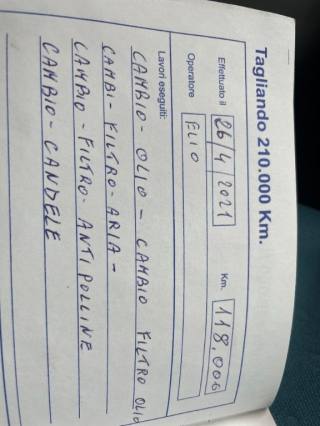 Tagliando 210.000 Km.
Effettuato il 26/4/2021 Km. 118.000
Operatore ELIO
Lavori eseguiti:
CAMBIO - OLIO - CAMBIO FILTRO OLIO
CAMBI - FILTRO - ARIA -
CAMBIO - FILTRO - ANTIPOLLINE
CAMBIO - CANDELE